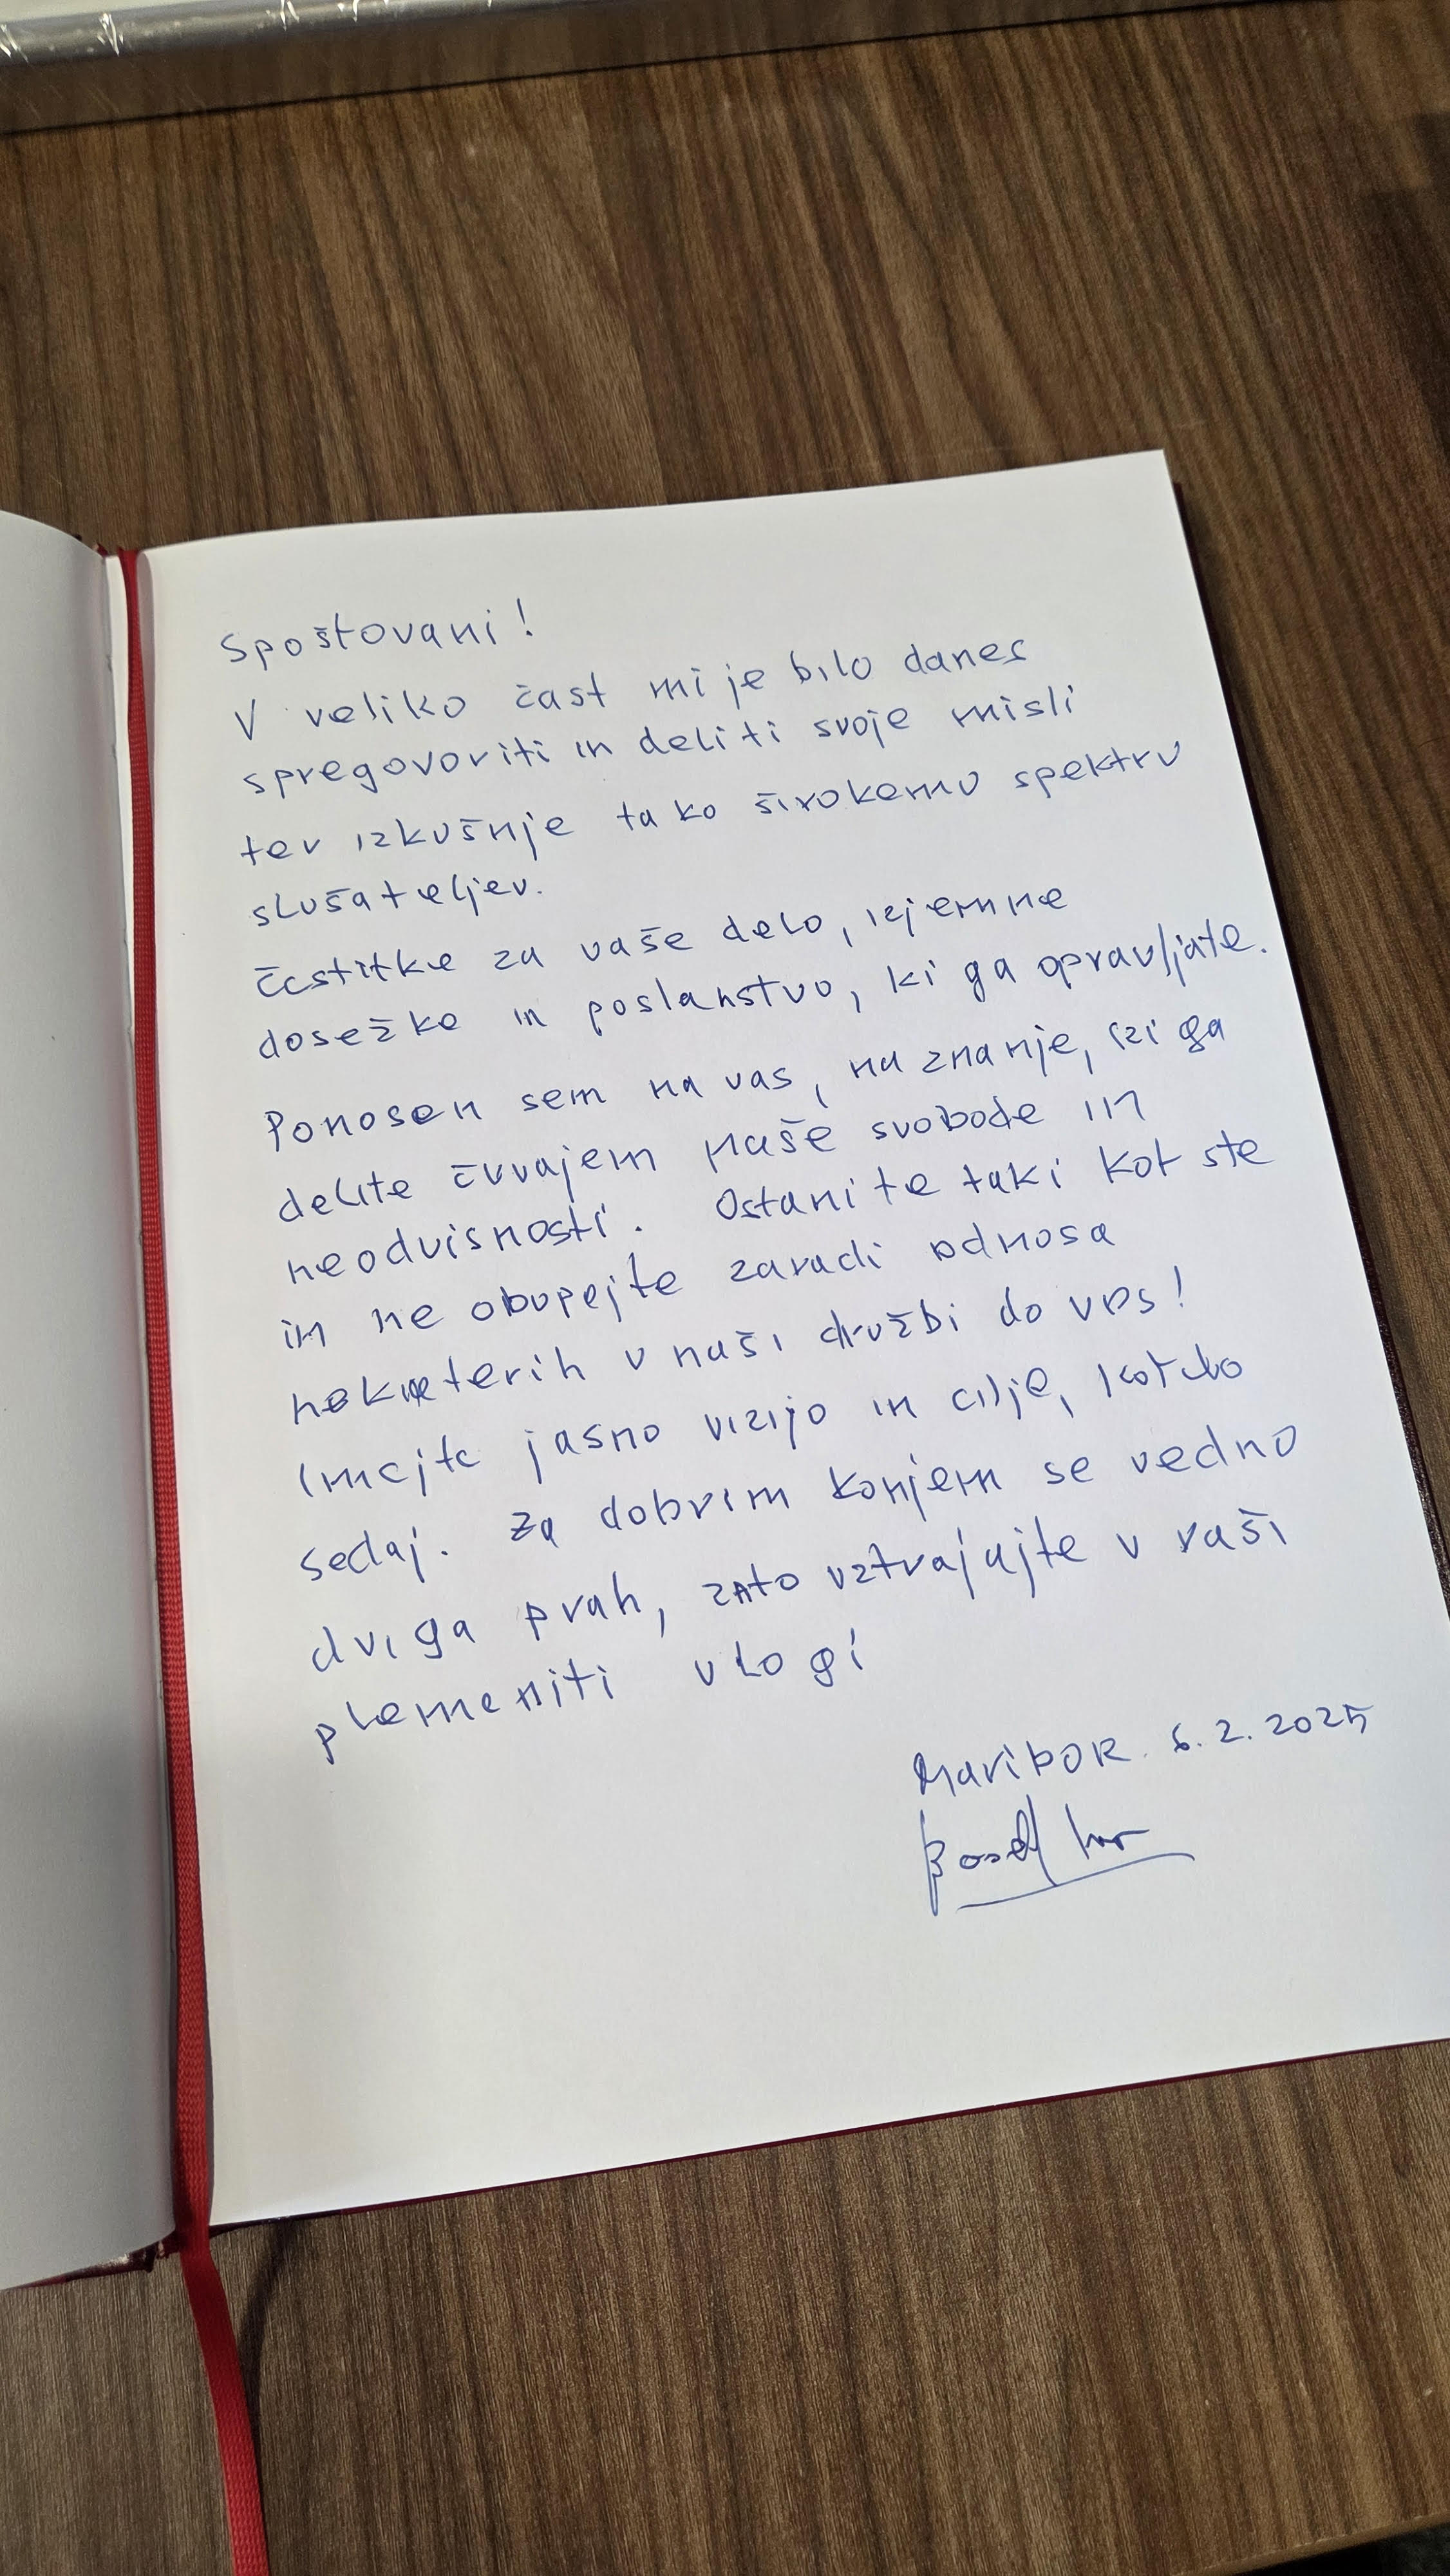 Spoštovani!
V veliko čast mi je bilo danes
spregovoriti in deliti svoje misli
ter izkušnje tako širokemu spektru
slušateljev.
Čestitke za vaše delo, izjemne
dosežke in poslanstvo, ki ga opravljate.
Ponosen sem na vas, na znanje, ki ga
delite čuvajem naše svobode in
neodvisnosti. Ostanite taki kot ste
in ne obupejte zaradi odnosa
nekaterih v naši družbi do vas!
Imejte jasno vizijo in cilje, kot do
sedaj. Za dobrim konjem se vedno
dviga prah, zato vztrajajte v vaši
plemeniti vlogi
Maribor 6.2.2025